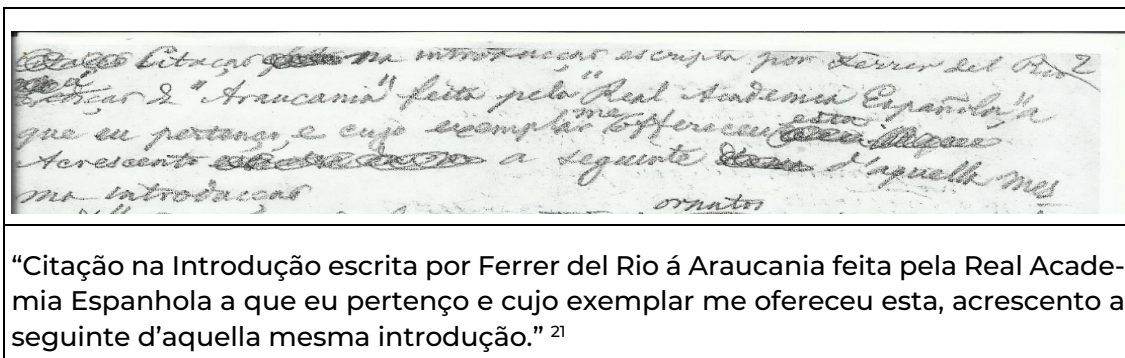 Citaçaõ na introducçaõ escripta por Ferrer del Rio 2
á ediçaõ d' "Araucania" feita pela "Real Academia Española" a
que eu pertenço, e cujo exemplar me offereceu esta
Acrescento a seguinte d'aquella mes
ma introducçaõ
ornatos
“Citação na Introdução escrita por Ferrer del Rio á Araucania feita pela Real Acade-
mia Espanhola a que eu pertenço e cujo exemplar me ofereceu esta, acrescento a
seguinte d’aquella mesma introdução.” 21